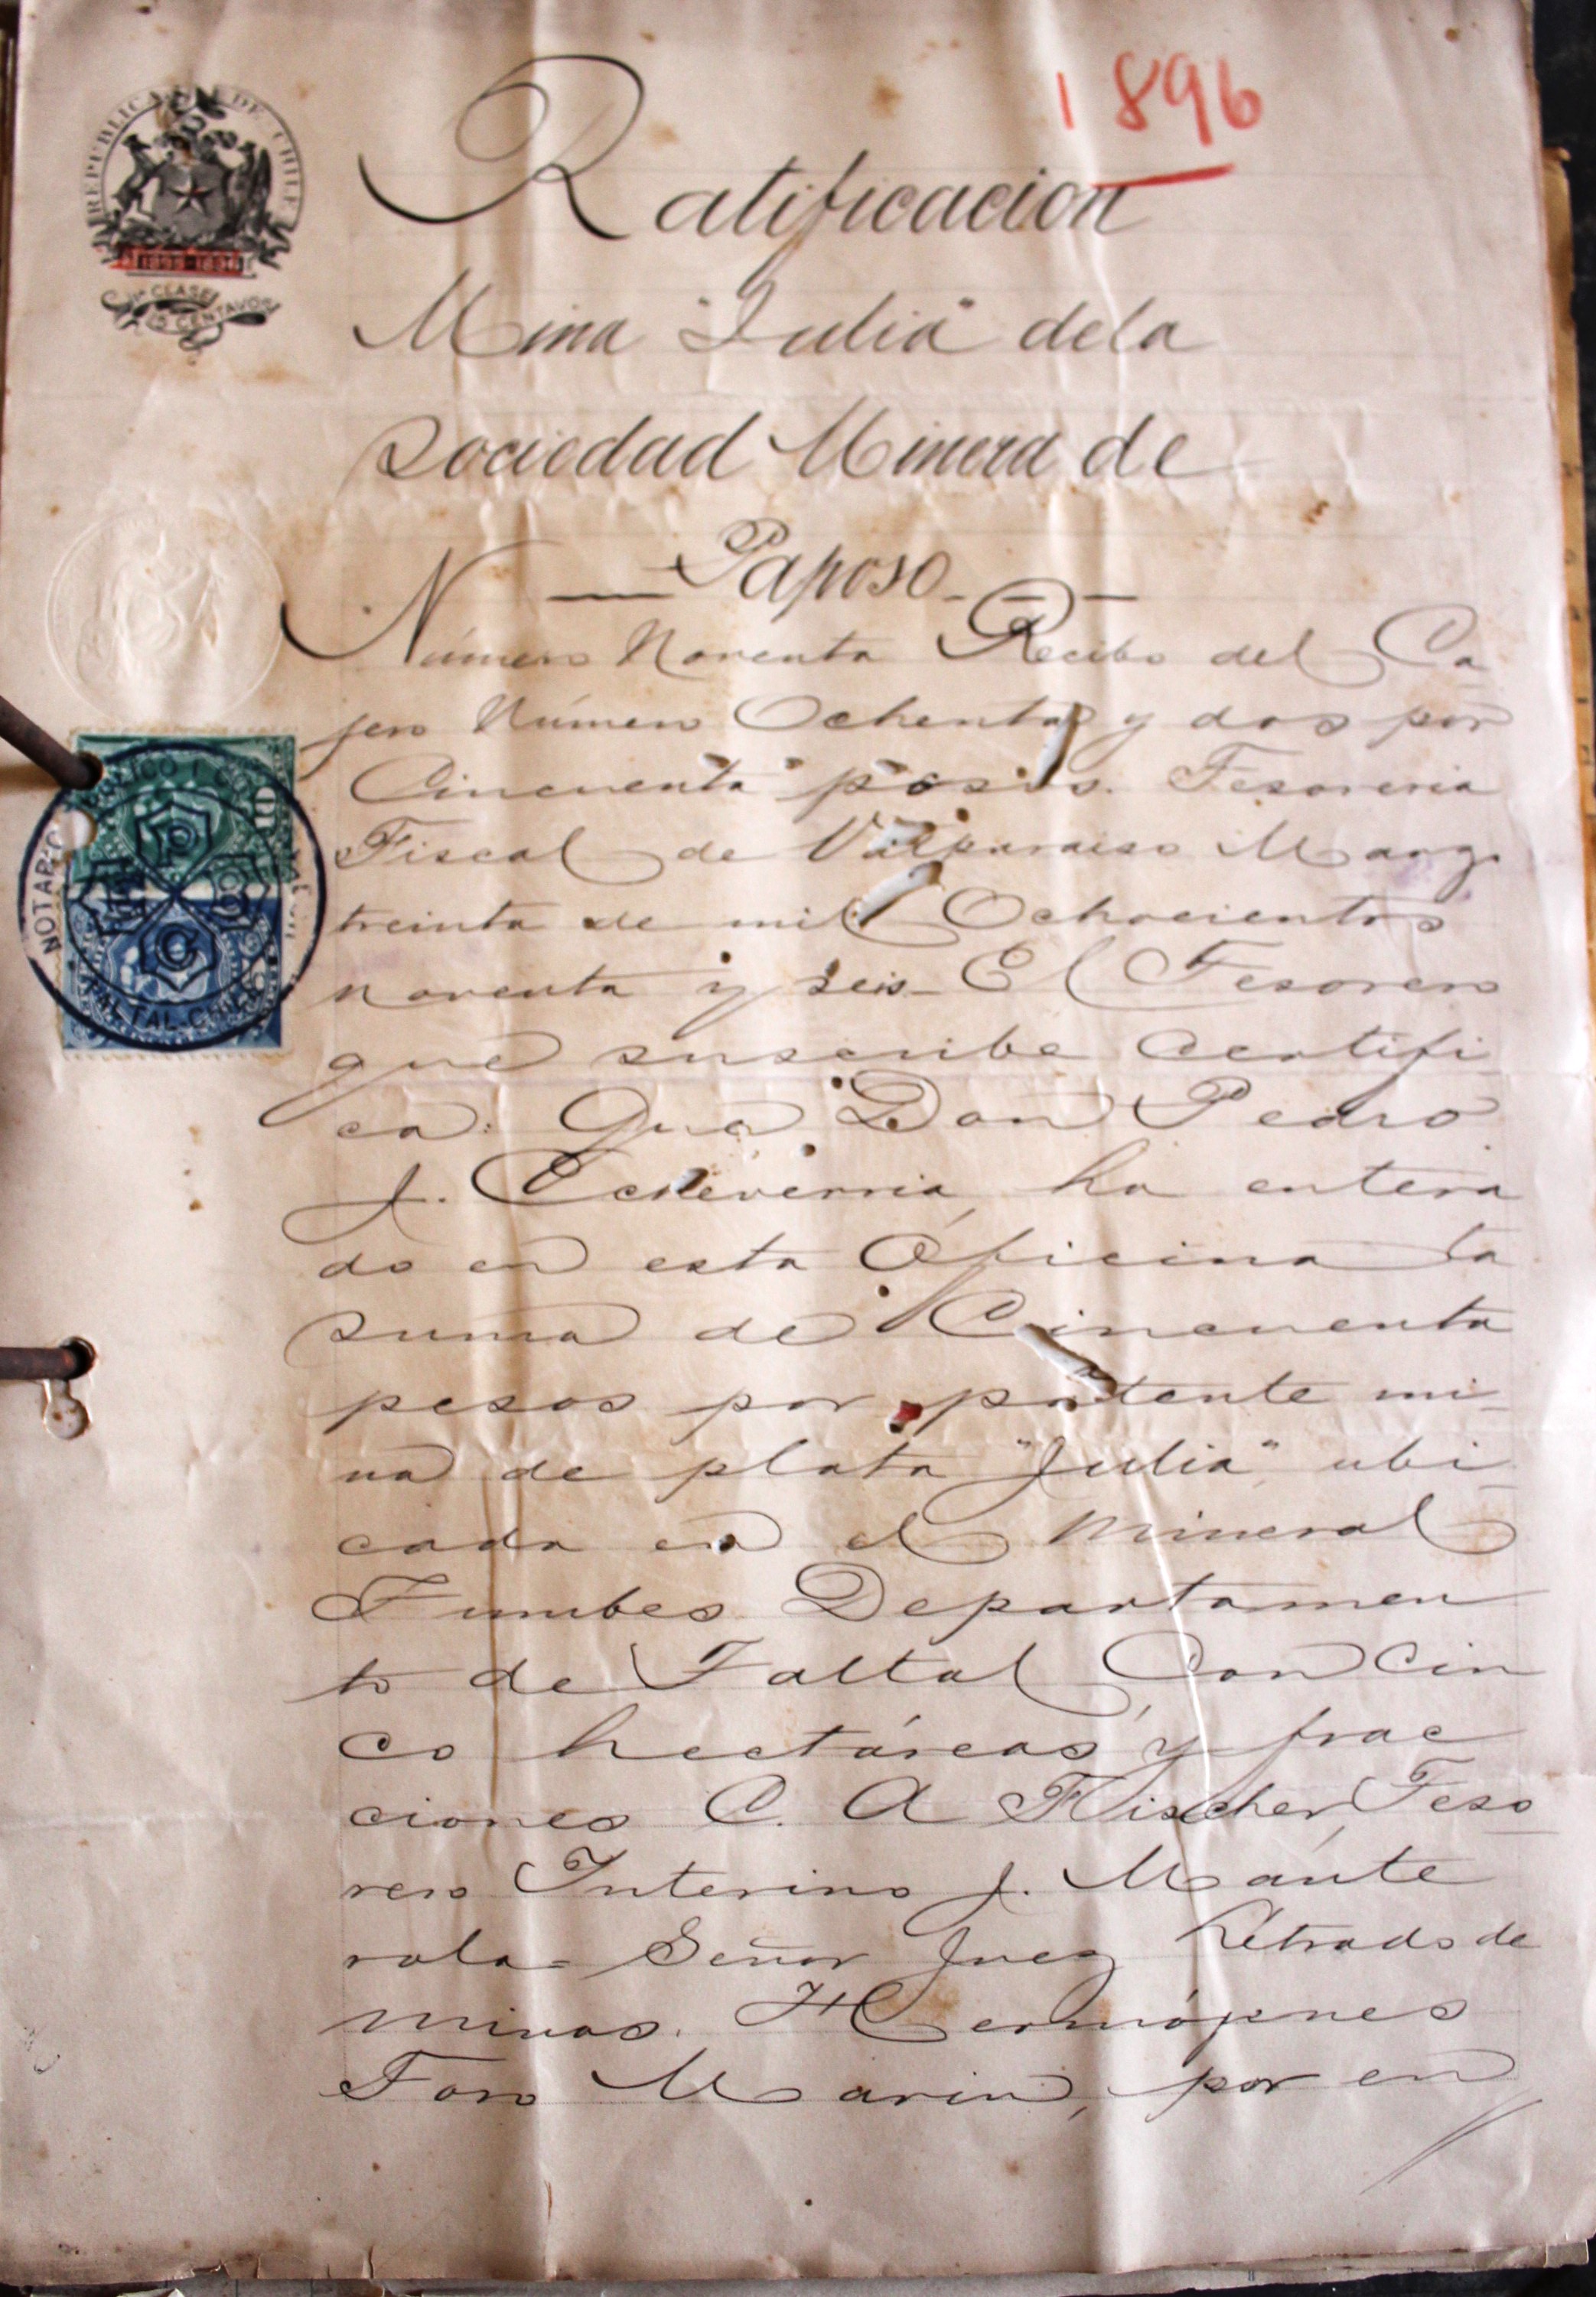 1896
REPUBLICA DE CHILE
1895-1896
CLASE
CENTAVOS
Ratificacion
Mina "Julia" de la
Sociedad Minera de
Paposo
Número Noventa Recibo del Ca
jero Número Ochenta y dos por
Cincuenta pesos. Tesoreria
Fiscal de Valparaiso Marzo
treinta de mil Ochocientos
noventa y seis- El Tesorero
que suscribe Certifi
ca: Que Don Pedro
J. Echeverria, ha entera
do en esta Oficina la
suma de Cincuenta
pesos por patente mi-
na de plata "Julia" ubi-
cada en el Mineral
Tumbes Departamen
to de Taltal Con Cin
co hectáreas y frac
ciones C. A Flischer, Teso
rero Interino J. Mante
rola= Señor Juez Letrado de
minas. Hermójenes
Toro Marin, por en
NOTARIO PUBLICO
TAL-TAL-CHILE